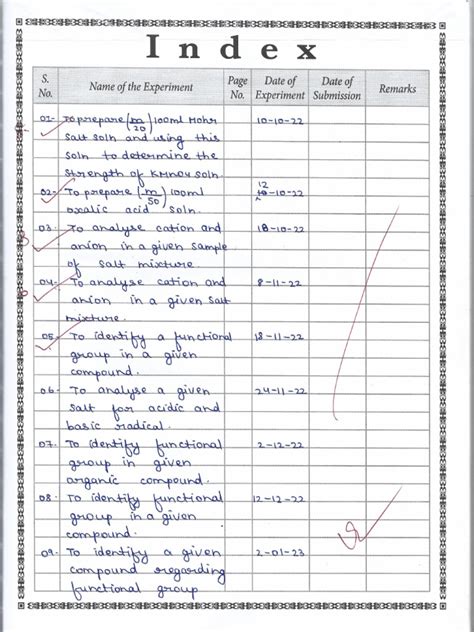 Index
S. No. Name of the Experiment Page No. Date of Experiment Date of Submission Remarks
01- To prepare (m/20) 100ml Mohr 10-10-22
salt soln and using this
soln to determine the
strength of KMNO4 soln.
02- To prepare (m/50) 100ml 12-10-22
oxalic acid soln.
03. To analyse cation and 18-10-22
anion in a given sample
of salt mixture.
04. To analyse cation and 8-11-22
anion in a given salt
mixture.
05. To identify a functional 18-11-22
group in a given
compound.
06. To analyse a given 24-11-22
salt for acidic and
basic radical.
07. To identify functional 2-12-22
group in given
organic compound.
08. To identify functional 12-12-22
group in a given
compound.
09. To identify a given 2-01-23
compound regarding
functional group